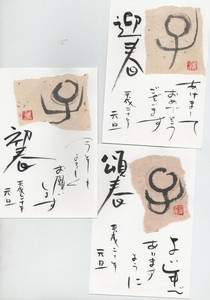 迎春
子
あけまして
おめでとう
ございます
平成二十年
元旦
初春
子
今年も
よろしく
お願い
します
平成二十年
元旦
頌春
子
よい年で
あります
ように
平成二十年
元旦